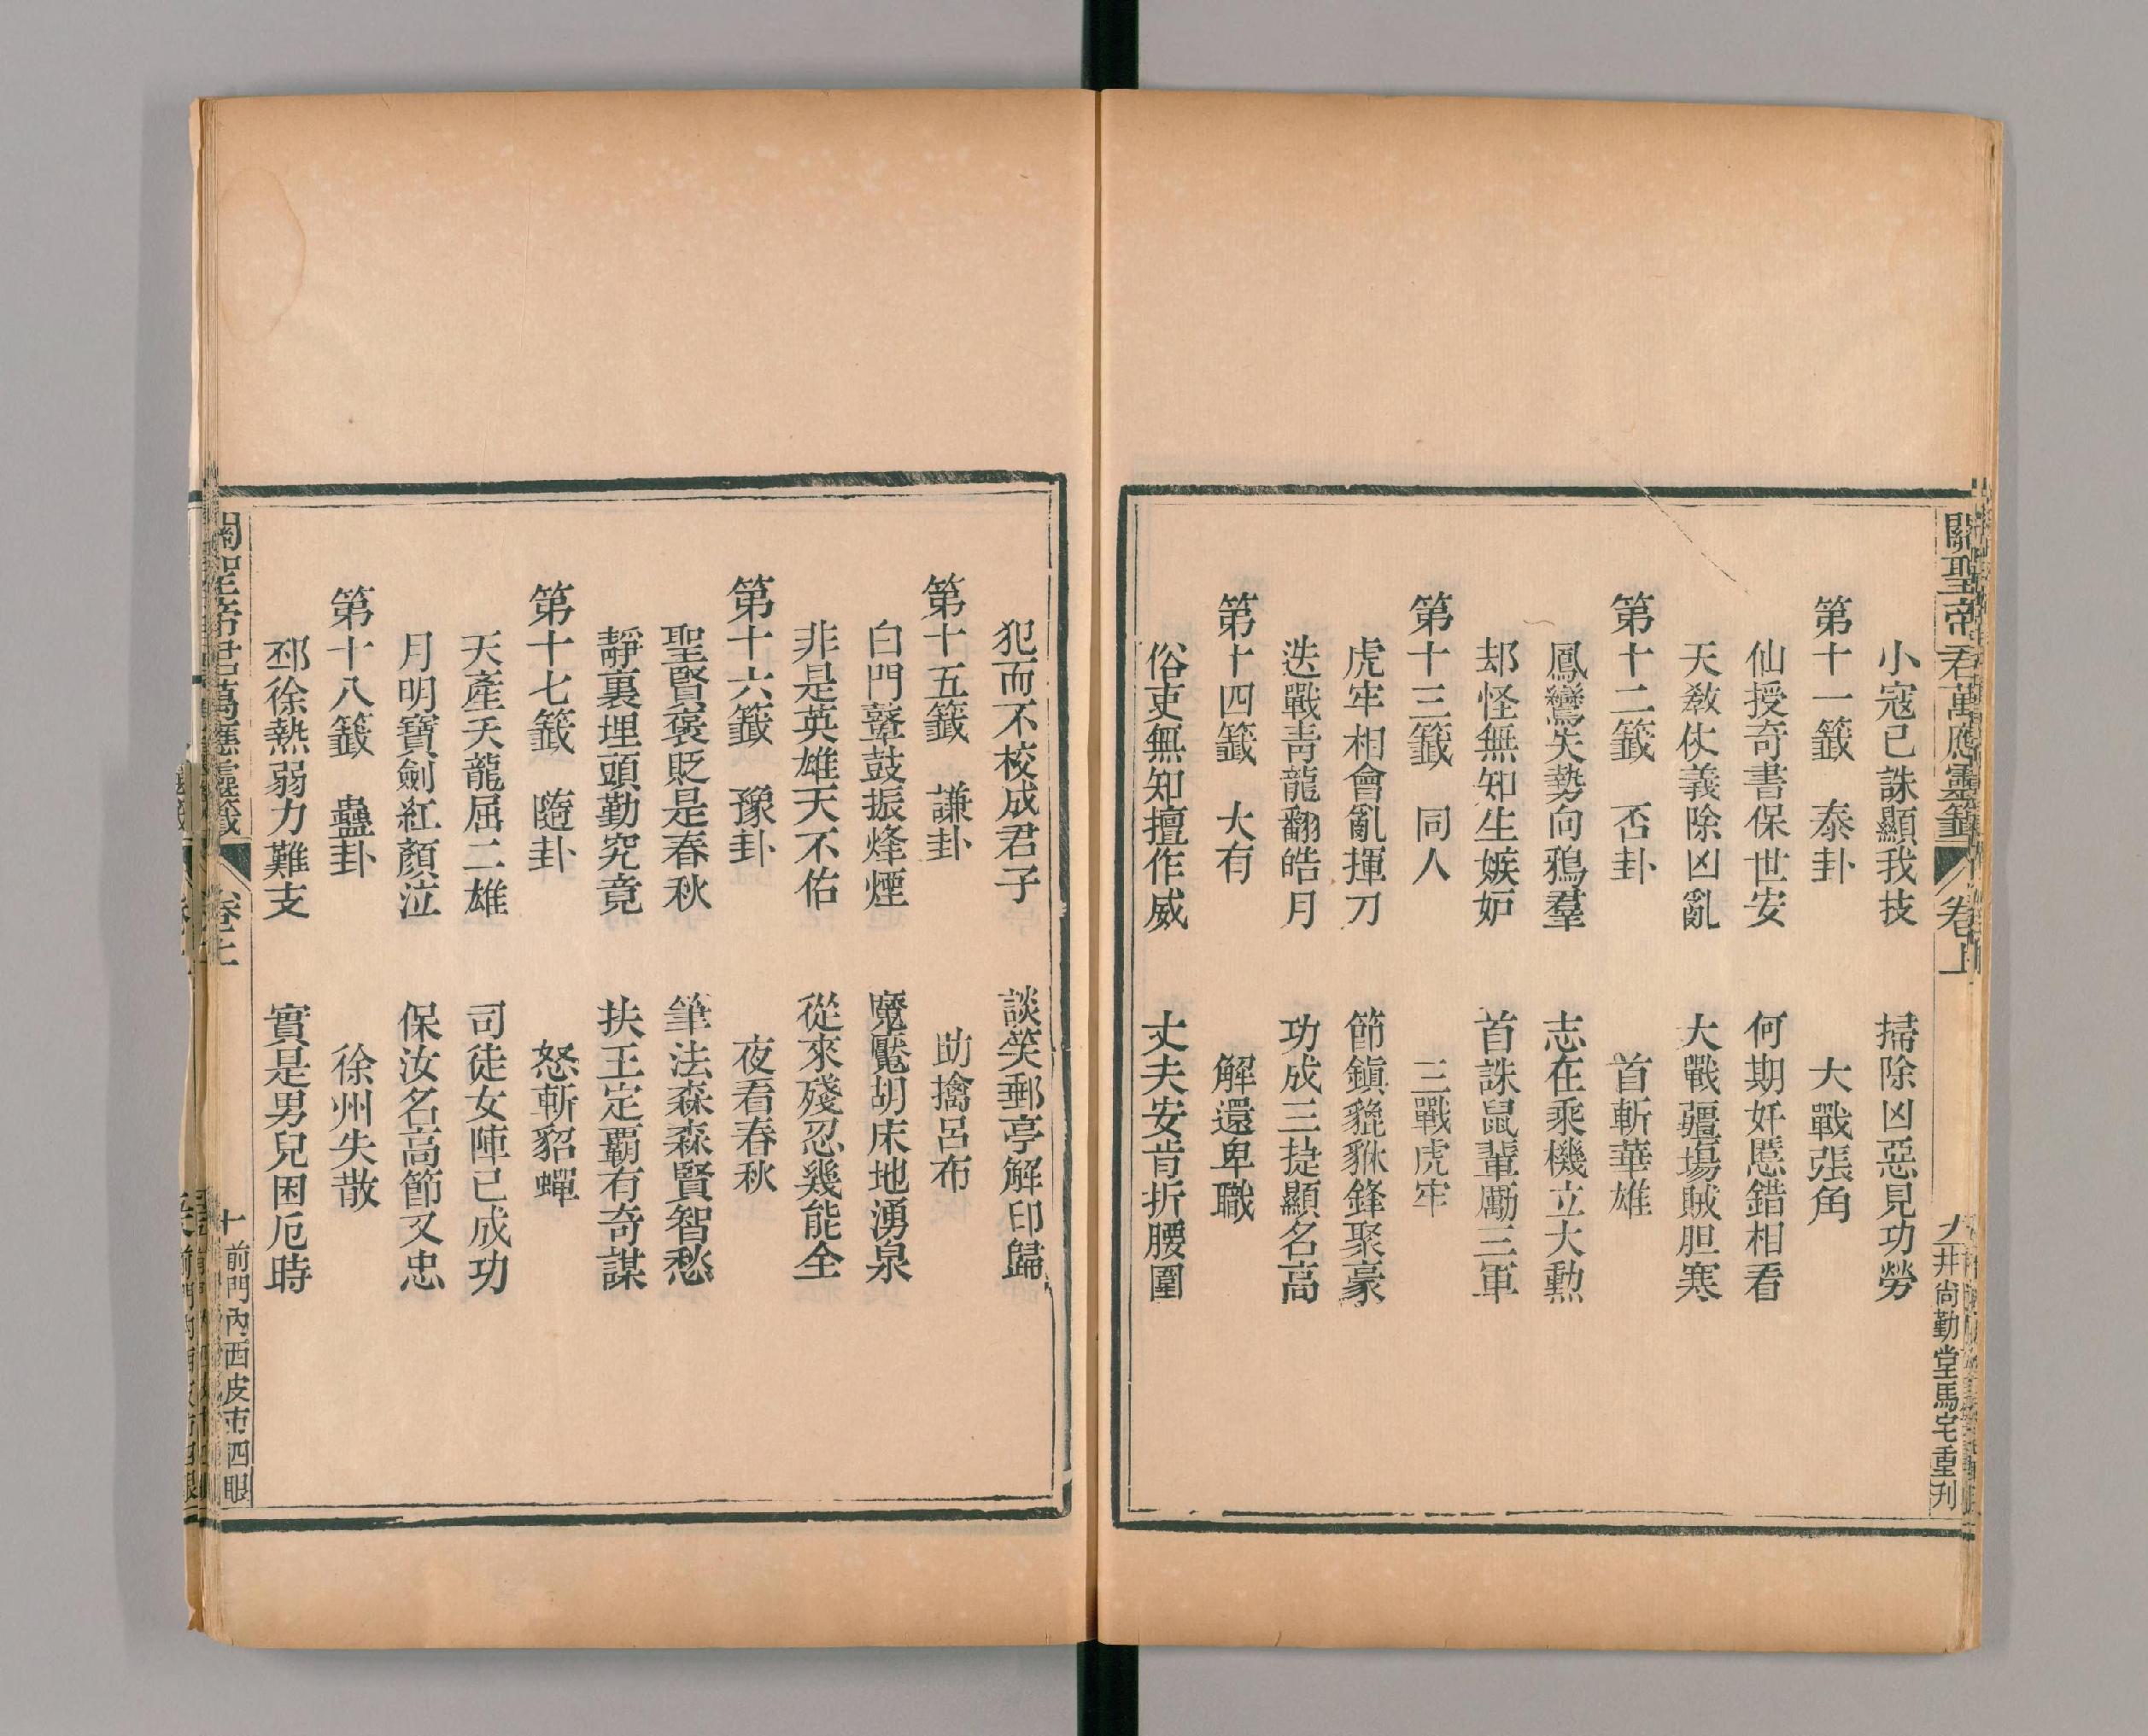 關聖帝君萬應靈籤 卷上 九 井尙勤堂馬宅重刋
小寇已誅顯我技 掃除凶惡見功勞
第十一籤 泰卦 大戰張角
仙授奇書保世安 何期奸慝錯相看
天敎仗義除凶亂 大戰疆場賊胆寒
第十二籤 否卦 首斬華雄
鳳鸞失勢向鴉羣 志在乘機立大勲
却怪無知生嫉妒 首誅鼠輩勵三軍
第十三籤 同人 三戰虎牢
虎牢相會亂揮刀 節鎭貔貅鋒聚豪
迭戰靑龍翻皓月 功成三捷顯名高
第十四籤 大有 解還卑職
俗吏無知擅作威 丈夫安肯折腰圍
犯而不校成君子 談笑郵亭解印歸
第十五籤 謙卦 助擒呂布
白門鼙鼓振烽煙 魔魘胡床地湧泉
非是英雄天不佑 從來殘忍幾能全
第十六籤 豫卦 夜看春秋
聖賢褒貶是春秋 筆法森森賢智愁
靜裏埋頭勤究竟 扶王定覇有奇謀
第十七籤 隨卦 怒斬貂蟬
天產夭龍屈二雄 司徒女陣已成功
月明寶劍紅顏泣 保汝名高節又忠
第十八籤 蠱卦 徐州失散
邳徐熱弱力難支 實是男兒困厄時
關聖帝君萬應靈籤 卷上 十 前門內西皮市四眼